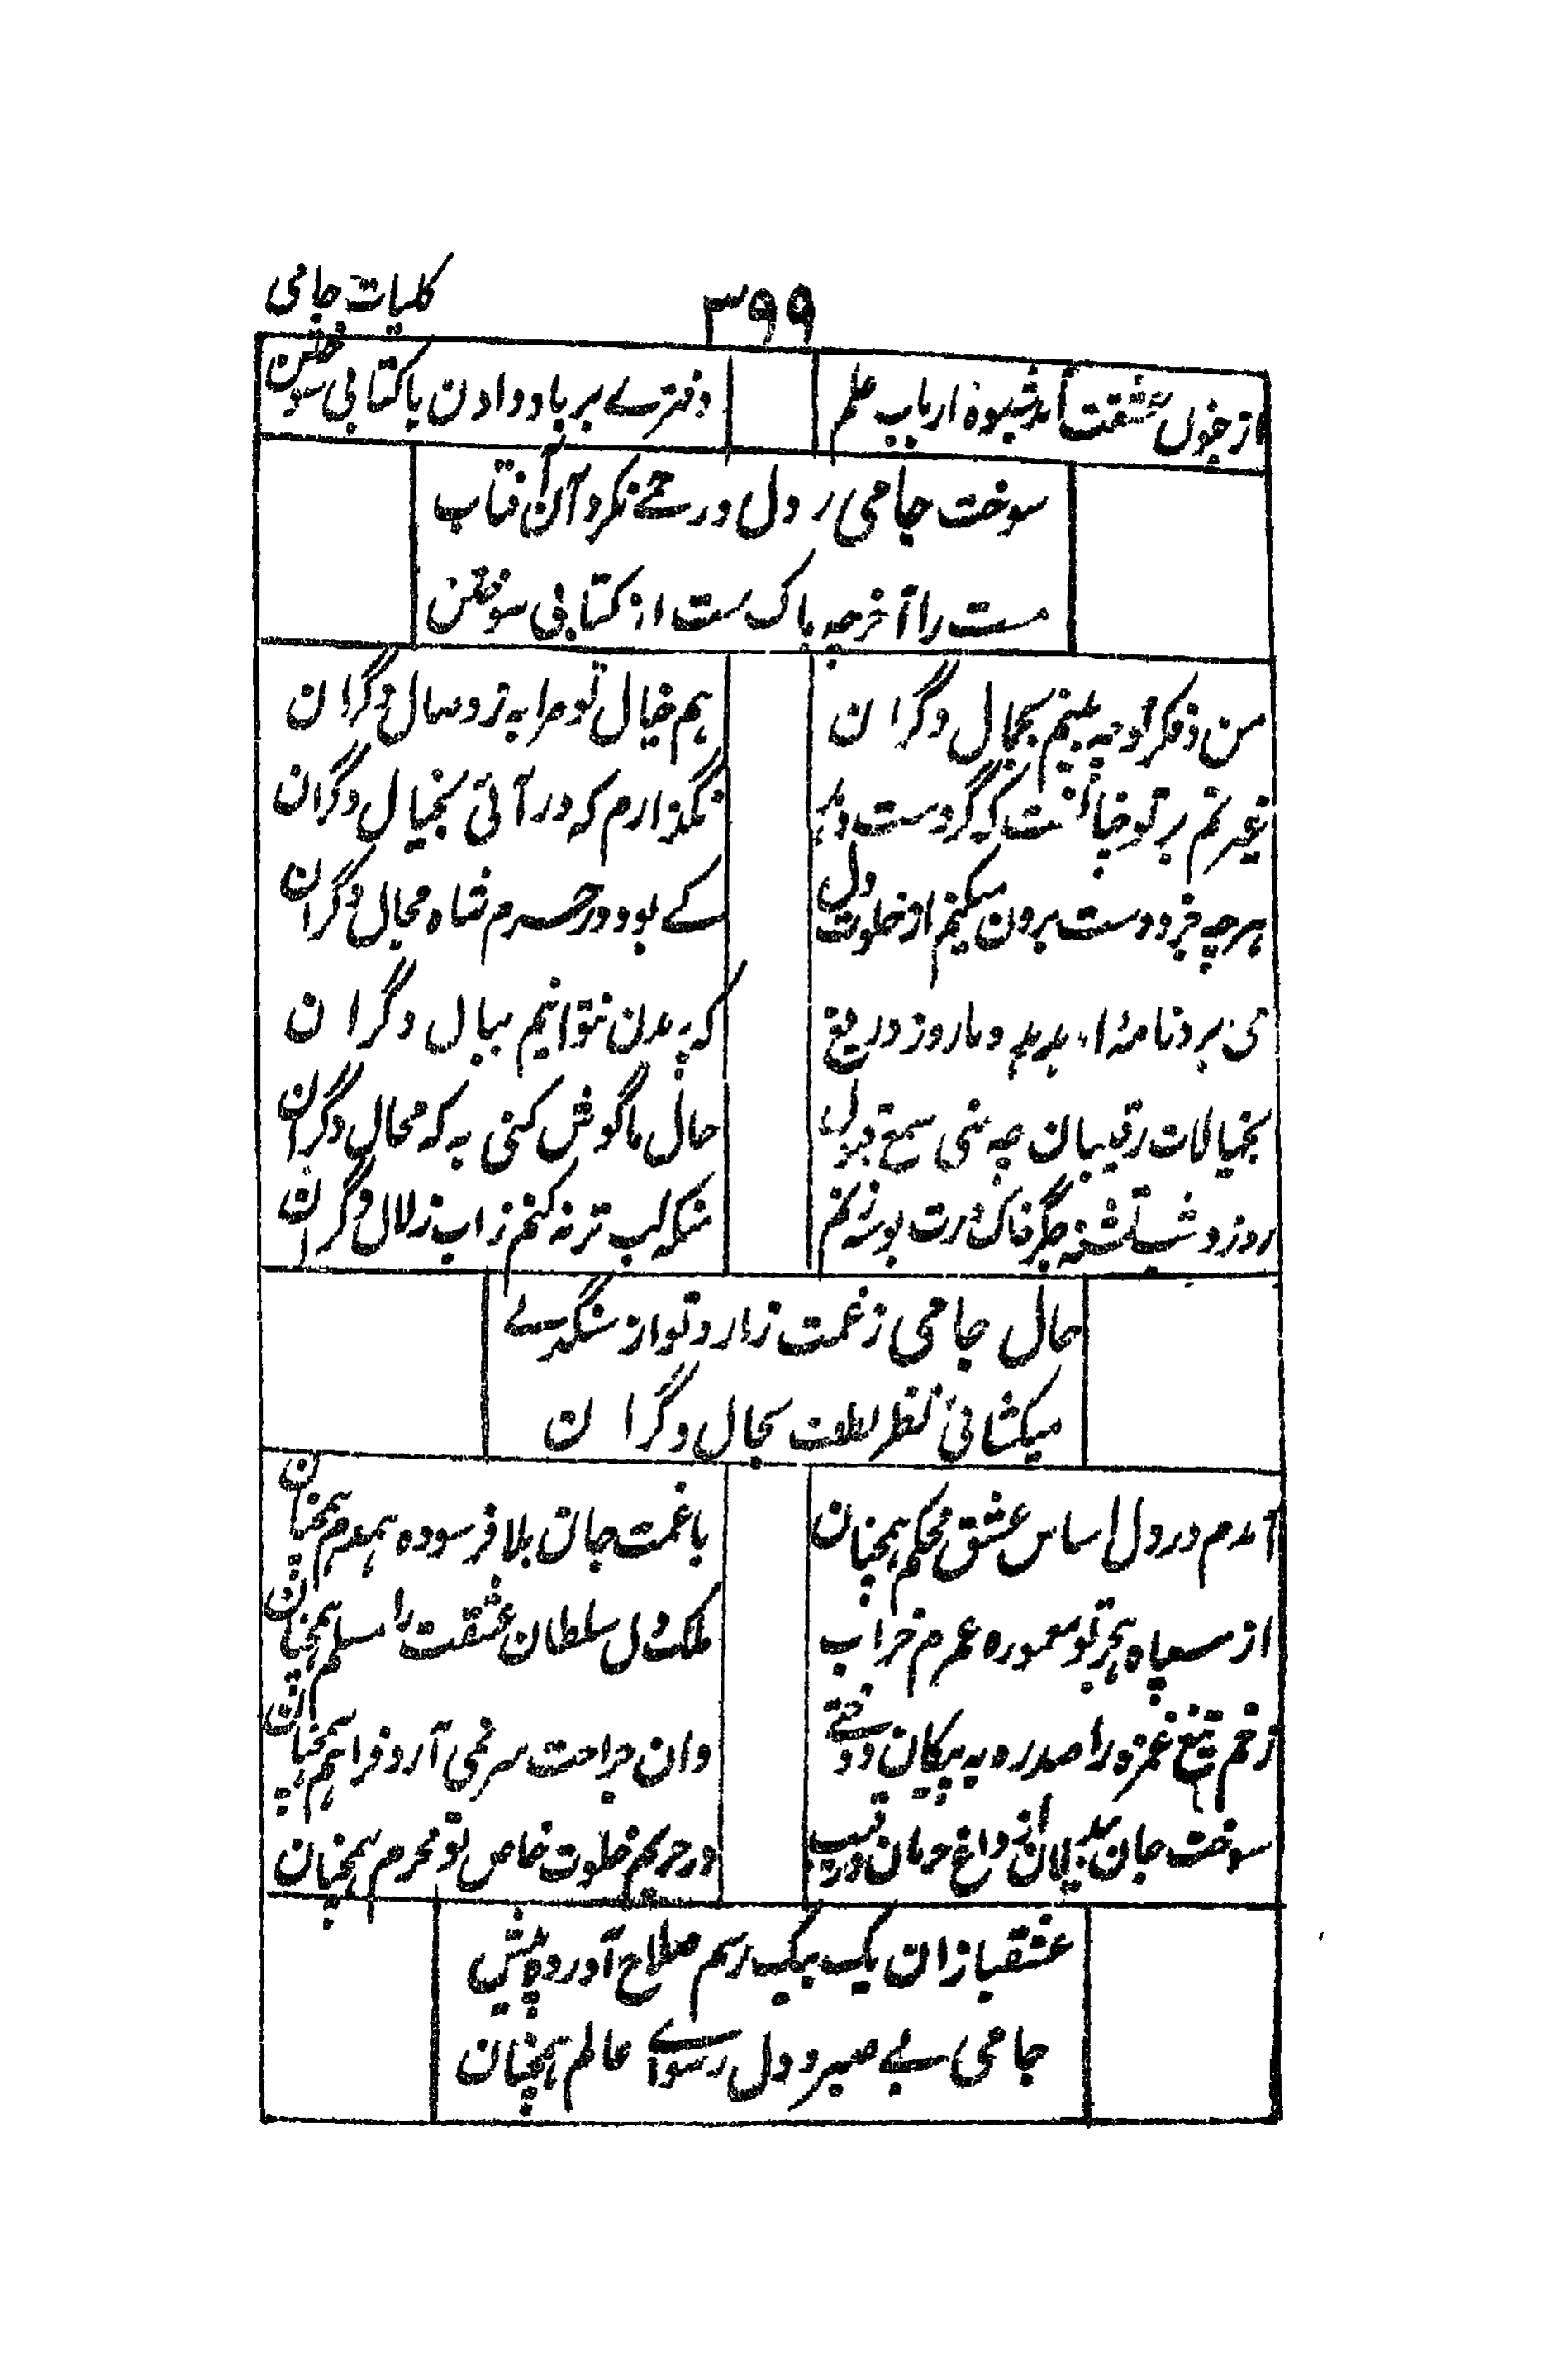 کلیات جامی
۳۹۹
از جنون عشقت آمد شیوهٔ ارباب علم
دفترے بر باد دادن یا کتابی سوختن
سوخت جامی را دل و رحمے نکرد آن آفتاب
مست را آخر چه باک ست از کتابی سوختن
من و فکر تو چه بینم بجمال دگران
هم خیال تو مرا به ز وصال دگران
غیرتم بر تو چنانست که گر دست دهد
نگذارم که در آئی بخیال دگران
هرچه جز دوست برون میکنم از خلوت دل
کے بود در حرم شاه مجال دگران
می برد نامه ما هدهد و ما روز دریغ
که پریدن نتوانیم ببال دگران
بخیالات رقیبان چه نهی سمع قبول
حال ما گوش کنی به که محال دگران
روز و شب تشنه جگر خاک درت بوسه زنم
منکه لب تر نه کنم ز آب زلال دگران
حال جامی ز غمت زار و تو از سنگدلے
میکشائی نظر لطف بحال دگران
آمدم در دل اساس عشق محکم همچنان
با غمت جان بلا فرسوده همدم همچنان
از سپاه هجر تو معموره عمرم خراب
ملک دل سلطان عشقت را مسلم همچنان
زخم تیغ غمزه را صد ره به پیکان دوختے
وان جراحت سر نمی آرد فراهم همچنان
سوخت جان بیدلان از داغ حرمان و رقیب
در حریم خلوت خاص تو محرم همچنان
عشقبازان یک بیک رسم صلاح آورده پیش
جامی بے صبر و دل رسوائے عالم همچنان